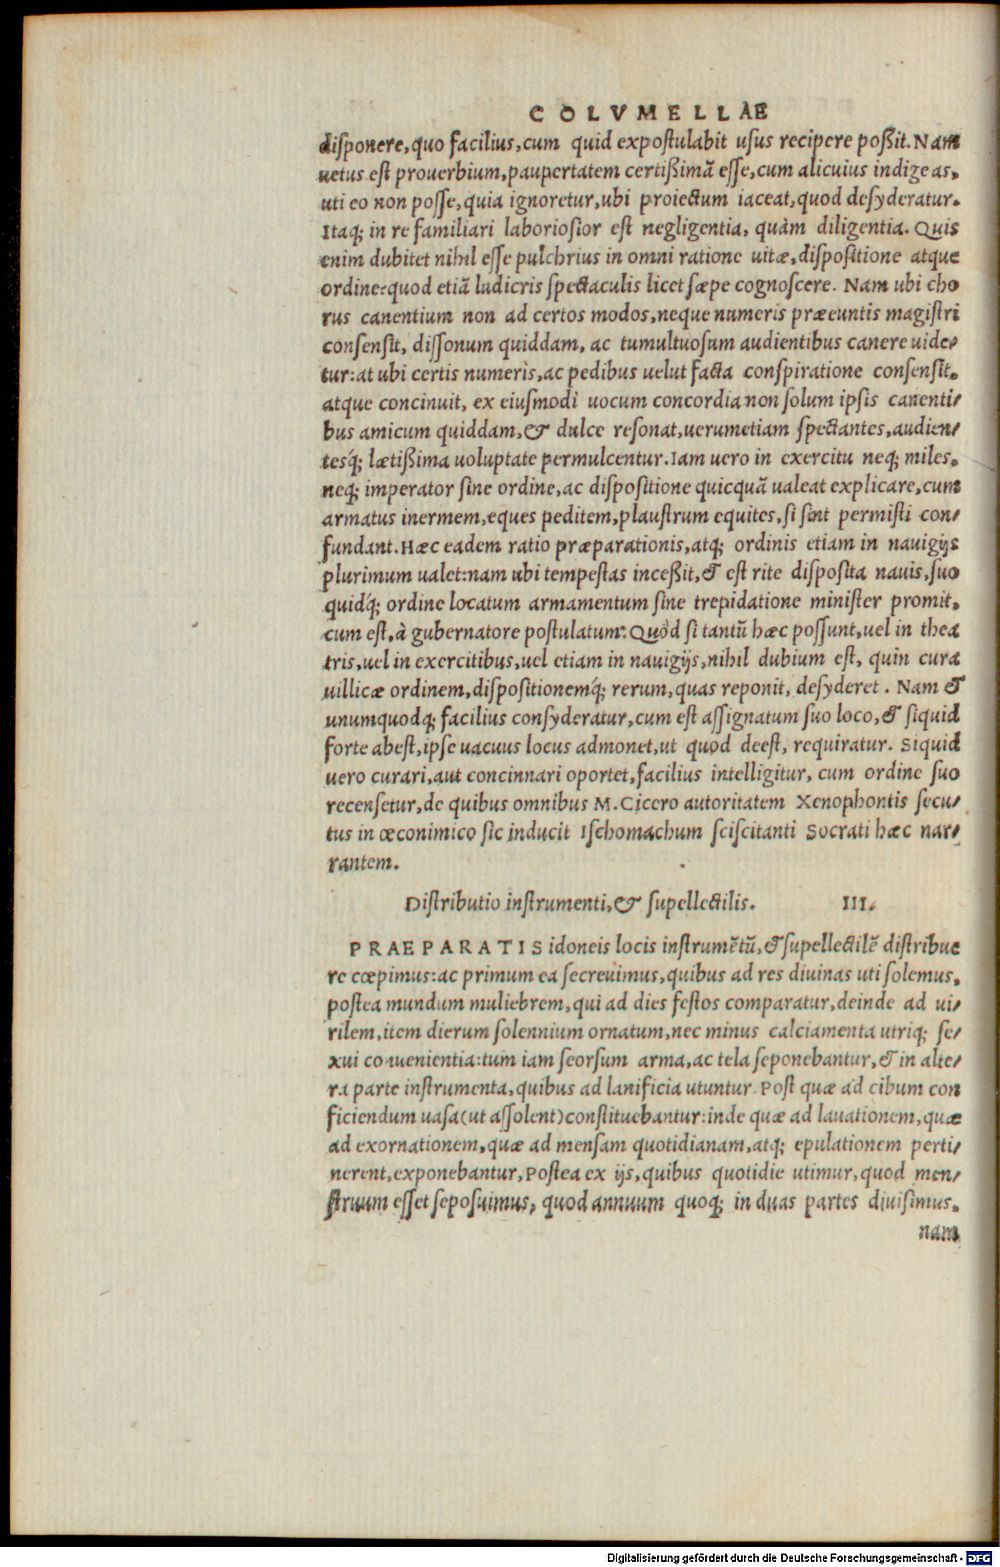 COLVMELLAE
disponere, quo facilius, cum quid expostulabit usus recipere poßit. Nam
uetus est prouerbium, paupertatem certißimã esse, cum alicuius indigeas,
uti eo non posse, quia ignoretur, ubi proiectum iaceat, quod desyderatur.
Itaq; in re familiari laboriosior est negligentia, quàm diligentia. Quis
enim dubitet nihil esse pulchrius in omni ratione uitæ, dispositione atque
ordine: quod etiã ludicris spectaculis licet sæpe cognoscere. Nam ubi cho
rus canentium non ad certos modos, neque numeris præeuntis magistri
consensit, dissonum quiddam, ac tumultuosum audientibus canere uide-
tur: at ubi certis numeris, ac pedibus uelut facta conspiratione consensit,
atque concinuit, ex eiusmodi uocum concordia non solum ipsis canenti-
bus amicum quiddam, & dulce resonat, uerumetiam spectantes, audien-
tesq́; lætißima uoluptate permulcentur. Iam uero in exercitu neq; miles,
neq; imperator sine ordine, ac dispositione quicquã ualeat explicare, cum
armatus inermem, eques peditem, plaustrum equites, si sint permisti con-
fundant. Hæc eadem ratio præparationis, atq; ordinis etiam in nauigijs
plurimum ualet: nam ubi tempestas inceßit, & est rite disposita nauis, suo
quidq́; ordine locatum armamentum sine trepidatione minister promit,
cum est, à gubernatore postulatum: Quòd si tantũ hæc possunt, uel in thea
tris, uel in exercitibus, uel etiam in nauigijs, nihil dubium est, quin cura
uillicæ ordinem, dispositionemq́; rerum, quas reponit, desyderet. Nam &
unumquodq; facilius consyderatur, cum est assignatum suo loco, & siquid
forte abest, ipse uacuus locus admonet, ut quod deest, requiratur. Siquid
uero curari, aut concinnari oportet, facilius intelligitur, cum ordine suo
recensetur, de quibus omnibus M. Cicero autoritatem Xenophontis secu-
tus in œconimico sic inducit Ischomachum sciscitanti Socrati hæc nar-
rantem.
Distributio instrumenti, & supellectilis. III.
PRAEPARATIS idoneis locis instrumẽtũ, & supellectilẽ distribue
re cœpimus: ac primum ea secreuimus, quibus ad res diuinas uti solemus,
postea mundum muliebrem, qui ad dies festos comparatur, deinde ad ui-
rilem, item dierum solennium ornatum, nec minus calciamenta utriq; se-
xui conuenientia: tum iam seorsum arma, ac tela seponebantur, & in alte-
ra parte instrumenta, quibus ad lanificia utuntur. Post quæ ad cibum con
ficiendum uasa (ut assolent) constituebantur: inde quæ ad lauationem, quæ
ad exornationem, quæ ad mensam quotidianam, atq; epulationem perti-
nerent, exponebantur, Postea ex ijs, quibus quotidie utimur, quod men-
struum esset seposuimus, quod annuum quoq; in duas partes diuisimus.
nam
Digitalisierung gefördert durch die Deutsche Forschungsgemeinschaft - DFG